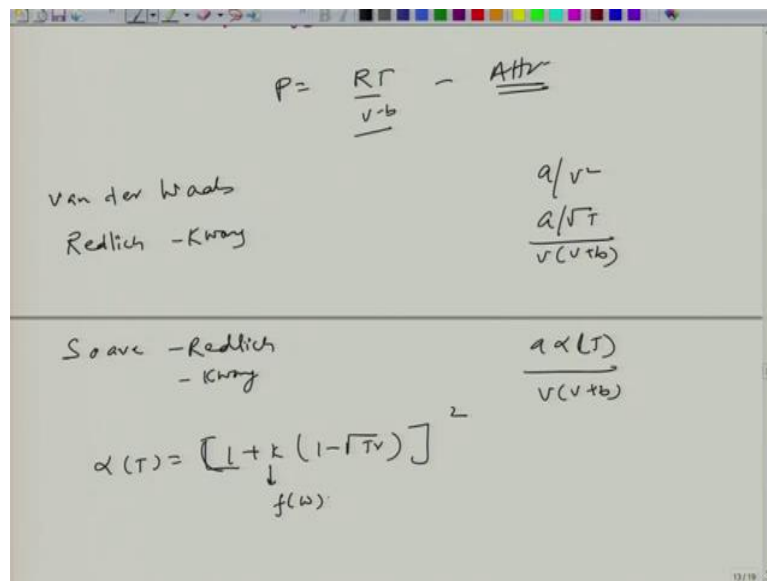 P = RT / v-b - Attr
van der Waals a/v²
Redlich - Kwong a/√T / v(v+b)
Soave - Redlich - Kwong a α(T) / v(v+b)
α(T) = [1 + k (1-√Tr)]²
f(ω)
13/19